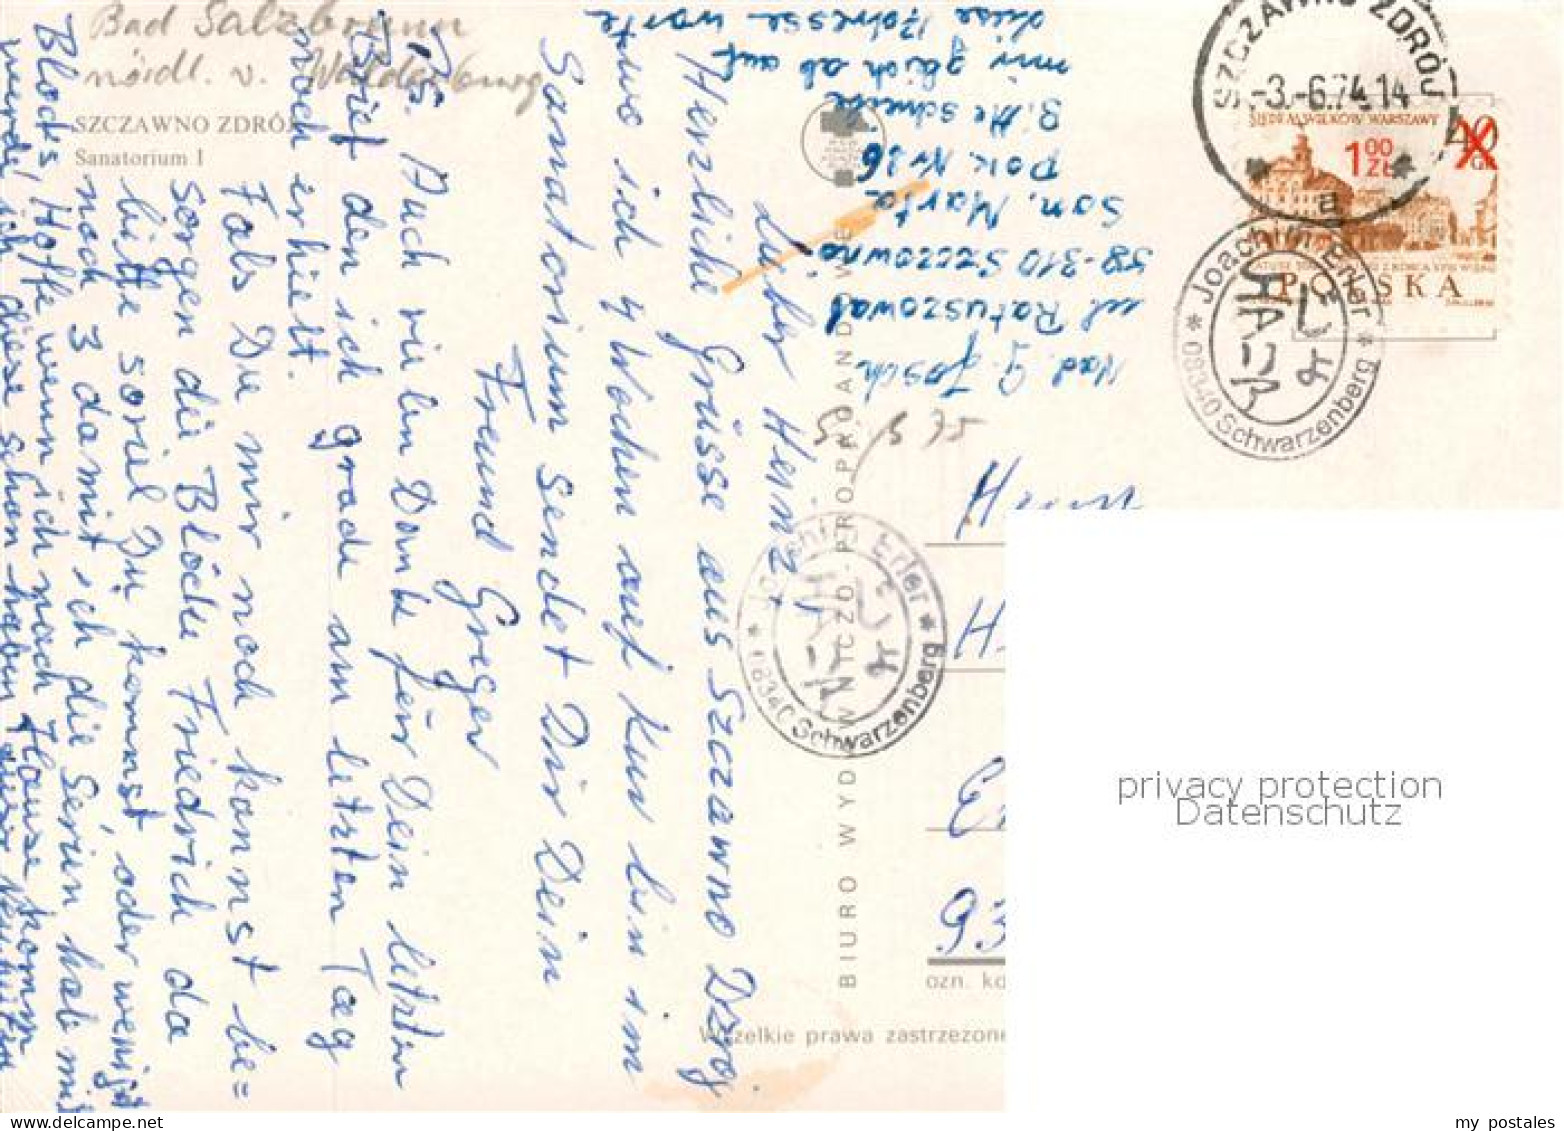 Bad Salzbrunn
nördl. v. Waldenburg
SZCZAWNO ZDRÓJ
Sanatorium I
Lieber Heinz!
Herzliche Grüsse aus Szczawno Droj
wo ich 4 Wochen auf Kur bin im
Sanatorium sendet Dir Dein
Freund Greger
Ps. Auch vielen Dank für Dein letzten
Brief den ich grade am letzten Tag
noch erhielt.
Fals Du mir noch kannst be=
sorgen die Blöcke Friedrich da
bitte soviel Du kannst, oder wenigst
noch 3 damit ich die Serien hab mit
Blocks, Hoffe wenn ich nach Hause komm
werde ich diese schon haben
Mad. G. Josch
ul. Ratuszowa
58-310 Szczawno
San. Marta
Pok. Nr 26
mir gleich ab auf
diese Adresse warte
5 75
BIURO WYDAWNICZO-PROPAGANDOWE
SZCZAWNO ZDRÓJ
-3.-6.74.14
a
SIEDEM WIEKÓW WARSZAWY
1 00 ZŁ
40 GR
POLSKA
Joachim Erler
* 08340 Schwarzenberg *
Joachim Erler
* 08340 Schwarzenberg *
H
E
93
ozn. ko
Wszelkie prawa zastrzeżone
privacy protection
Datenschutz
my postales